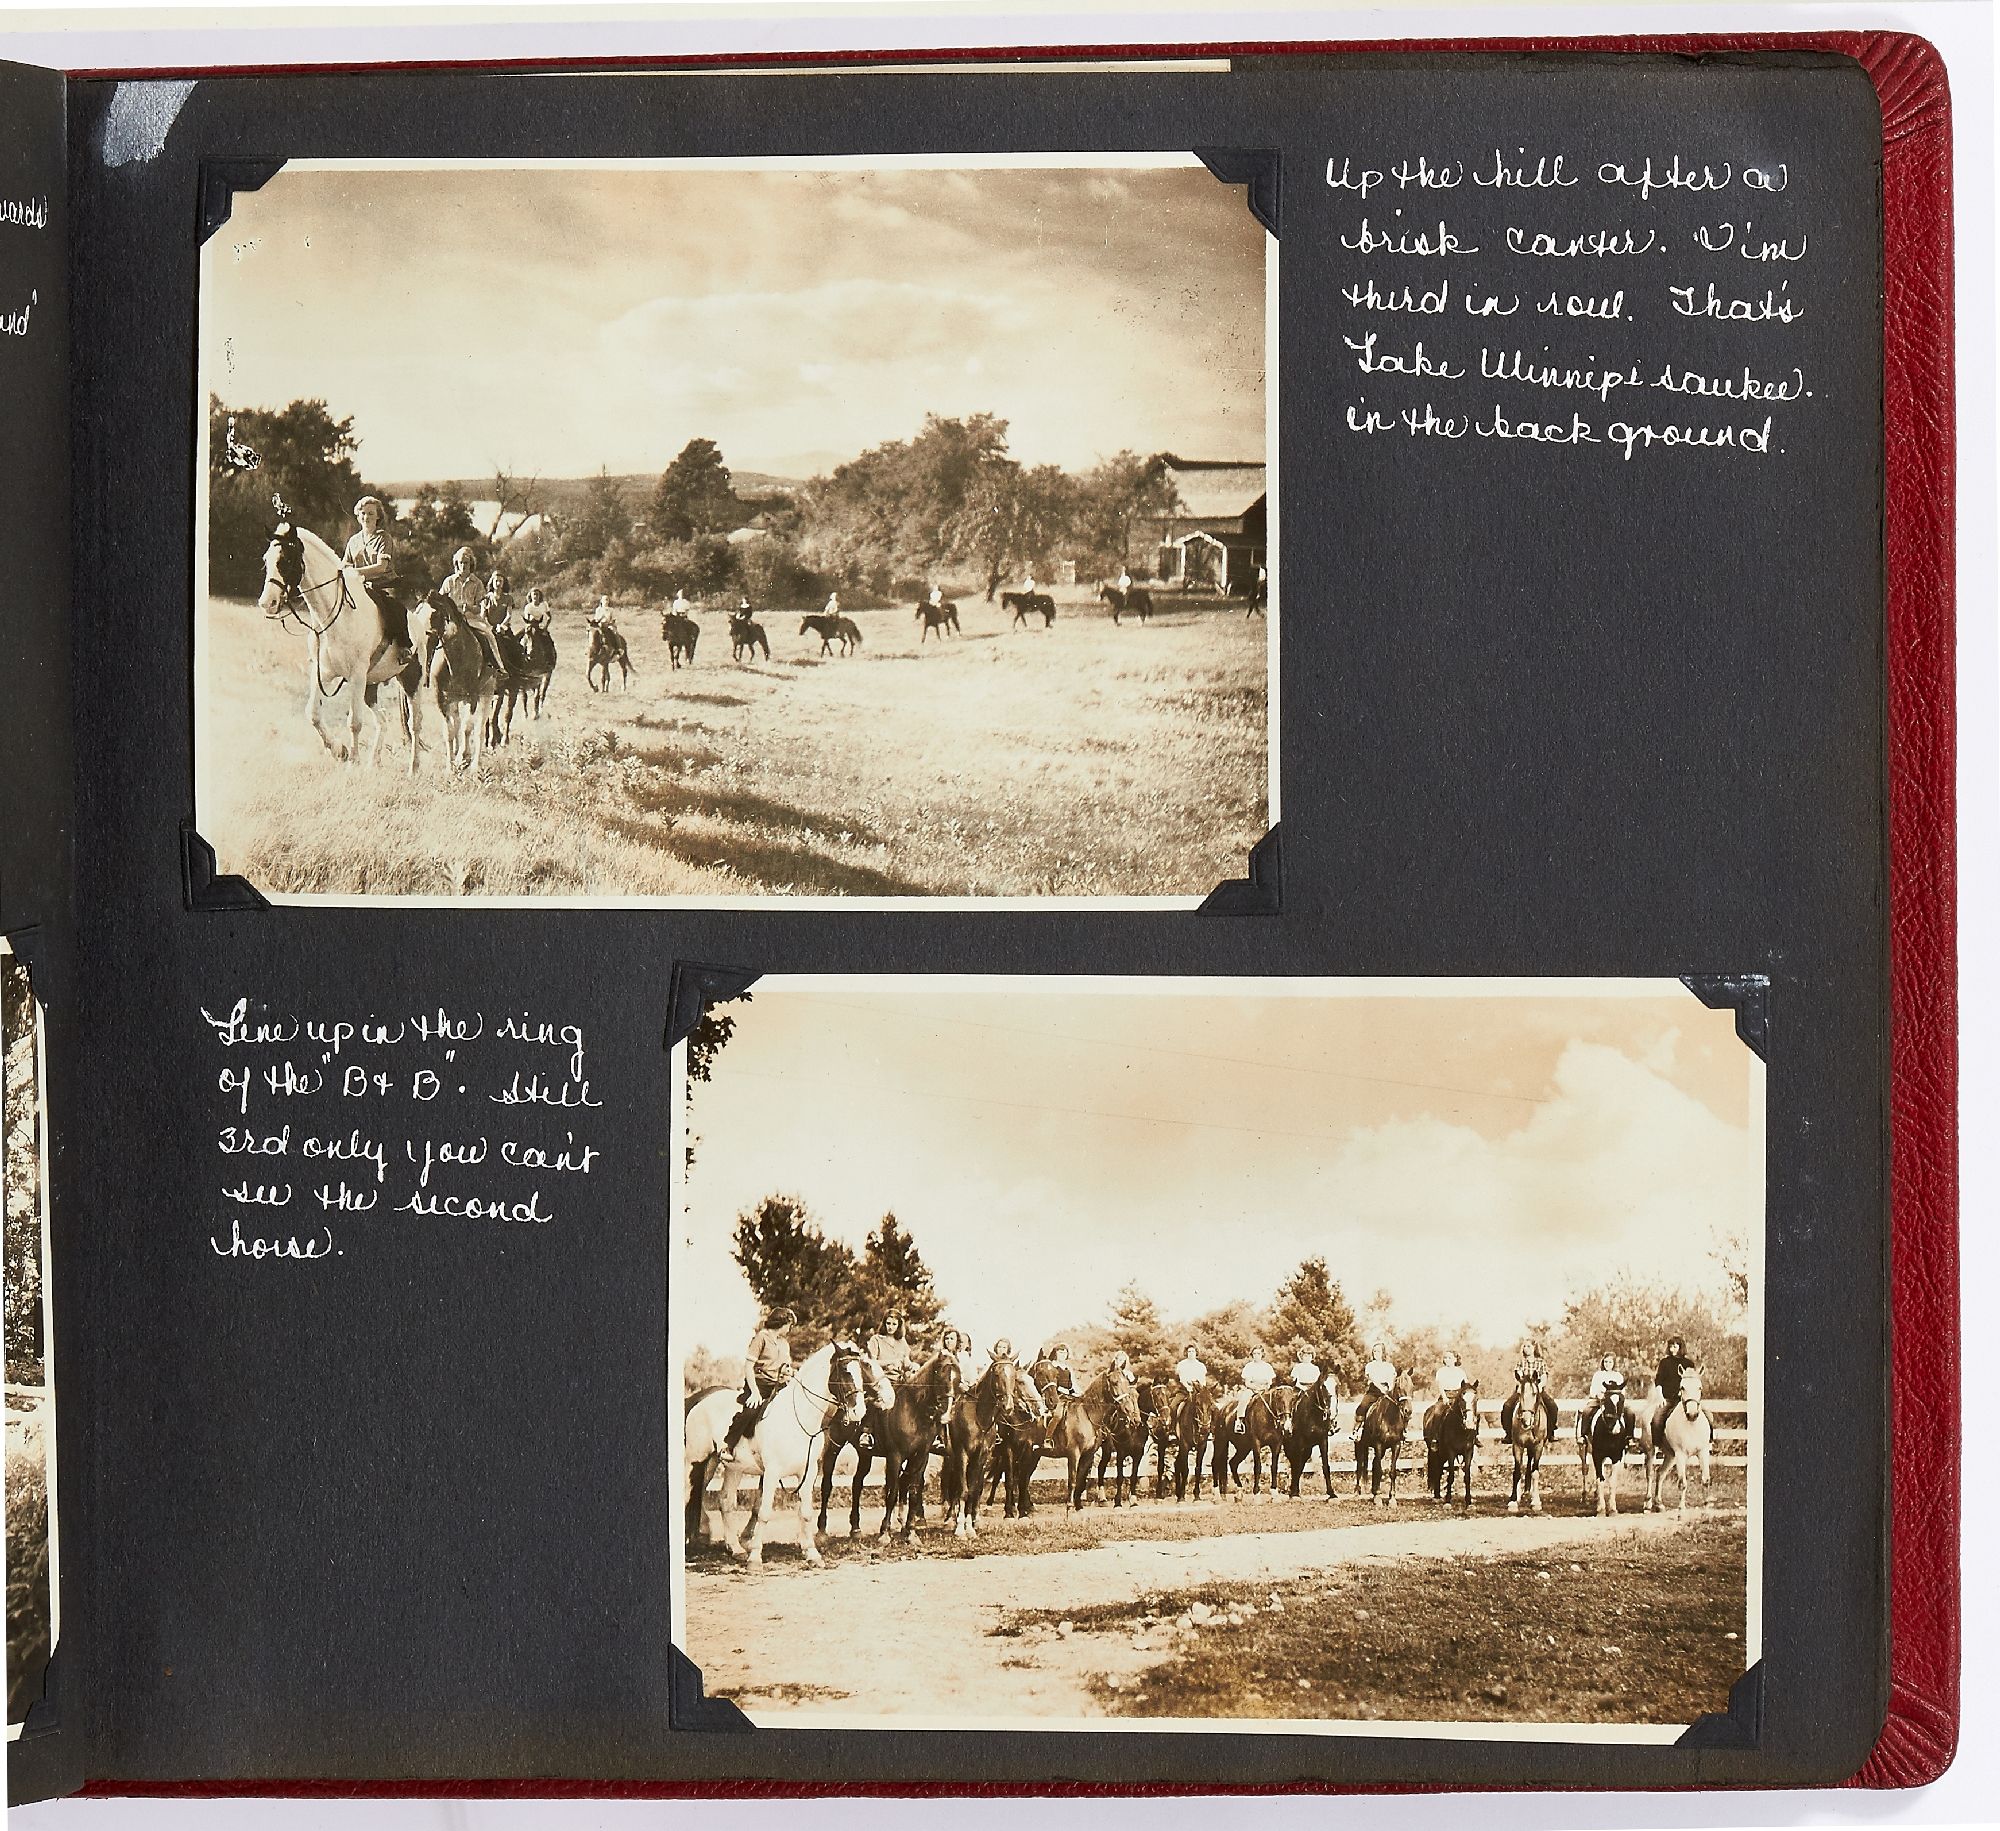 wards
and"
Up the hill after a
brisk canter. I'm
third in row. That's
Lake Winnipisaukee.
in the back ground.
Line up in the ring
of the "B & B". Still
3rd only you can't
see the second
horse.